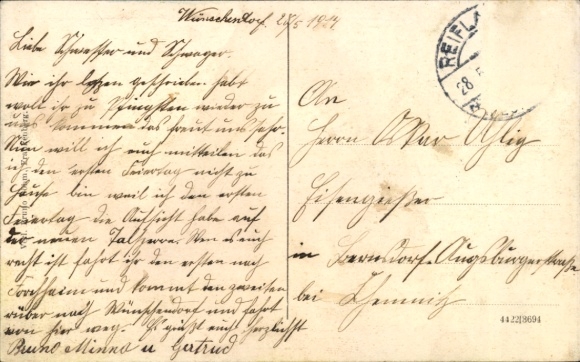 Wünschendorf. 28/5 1914
Liebe Schwester und Schwager.
Wie ihr geschrieben habt
wolt ir zu Pfingsten wieder zu
uns kommen das freut uns sehr.
Nun will ich euch mitteilen das
ich den ersten Feiertag nicht zu
Hause bin weil ich den ersten
Feiertag die Aufsicht habe auf
der neuen Talsperre. Wen es euch
recht ist fahrt ihr den ersten nach
Forchheim und kommt den zweiten
rüber nach Wünschendorf und fahrt
von hier weg. Es grüßt euch herzlichst
Bruno Minna u Gertrud
REIFL
28
An
Herrn Oskar Uhlig
Eisengießer
in Bernsdorf-Augsburgerstrasse
bei Chemnitz
4422/8694